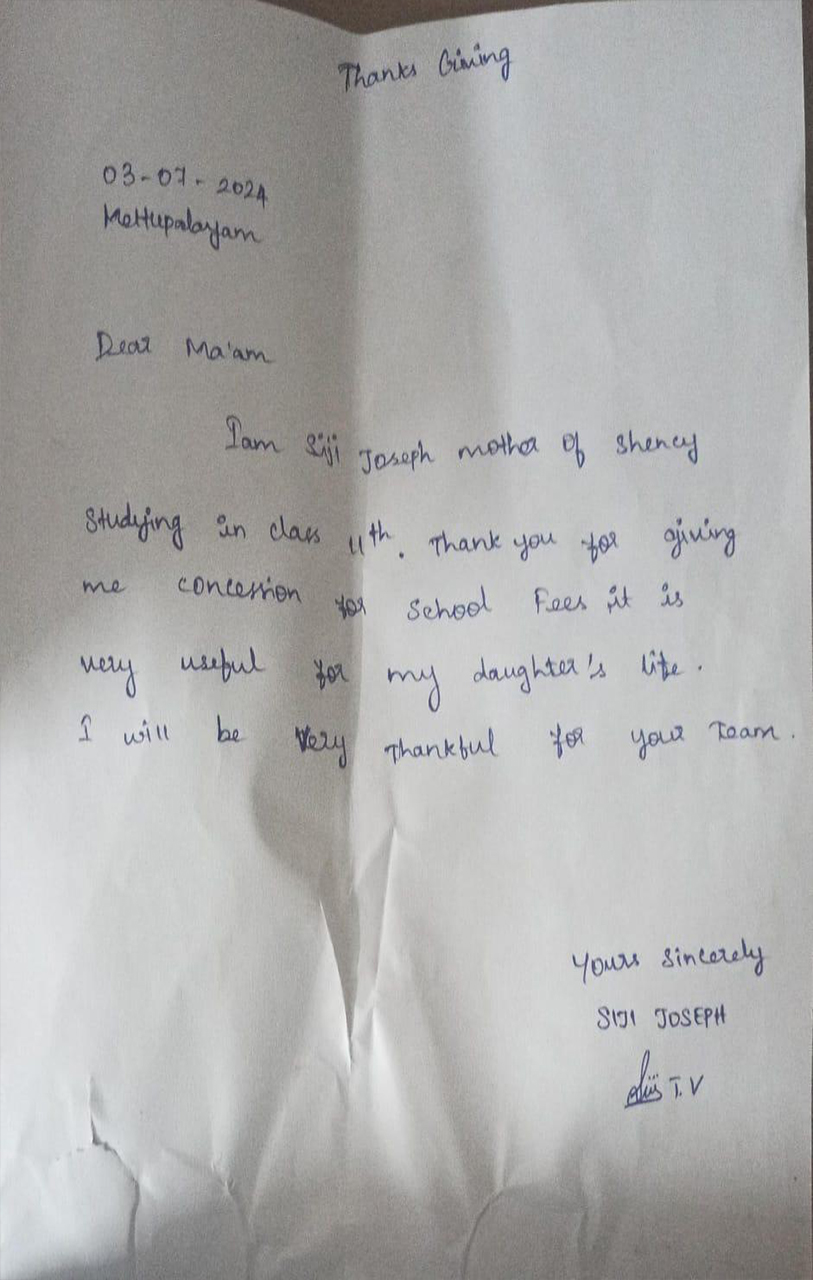 Thanks Giving
03-07-2024
Mettupalayam
Dear Ma'am
I am Siji Joseph mother of Shency
Studying in class 11th. Thank you for giving
me concession for School Fees it is
very useful for my daughter's life.
I will be very Thankful for your Team.
Yours Sincerely
SIJI JOSEPH
T.V